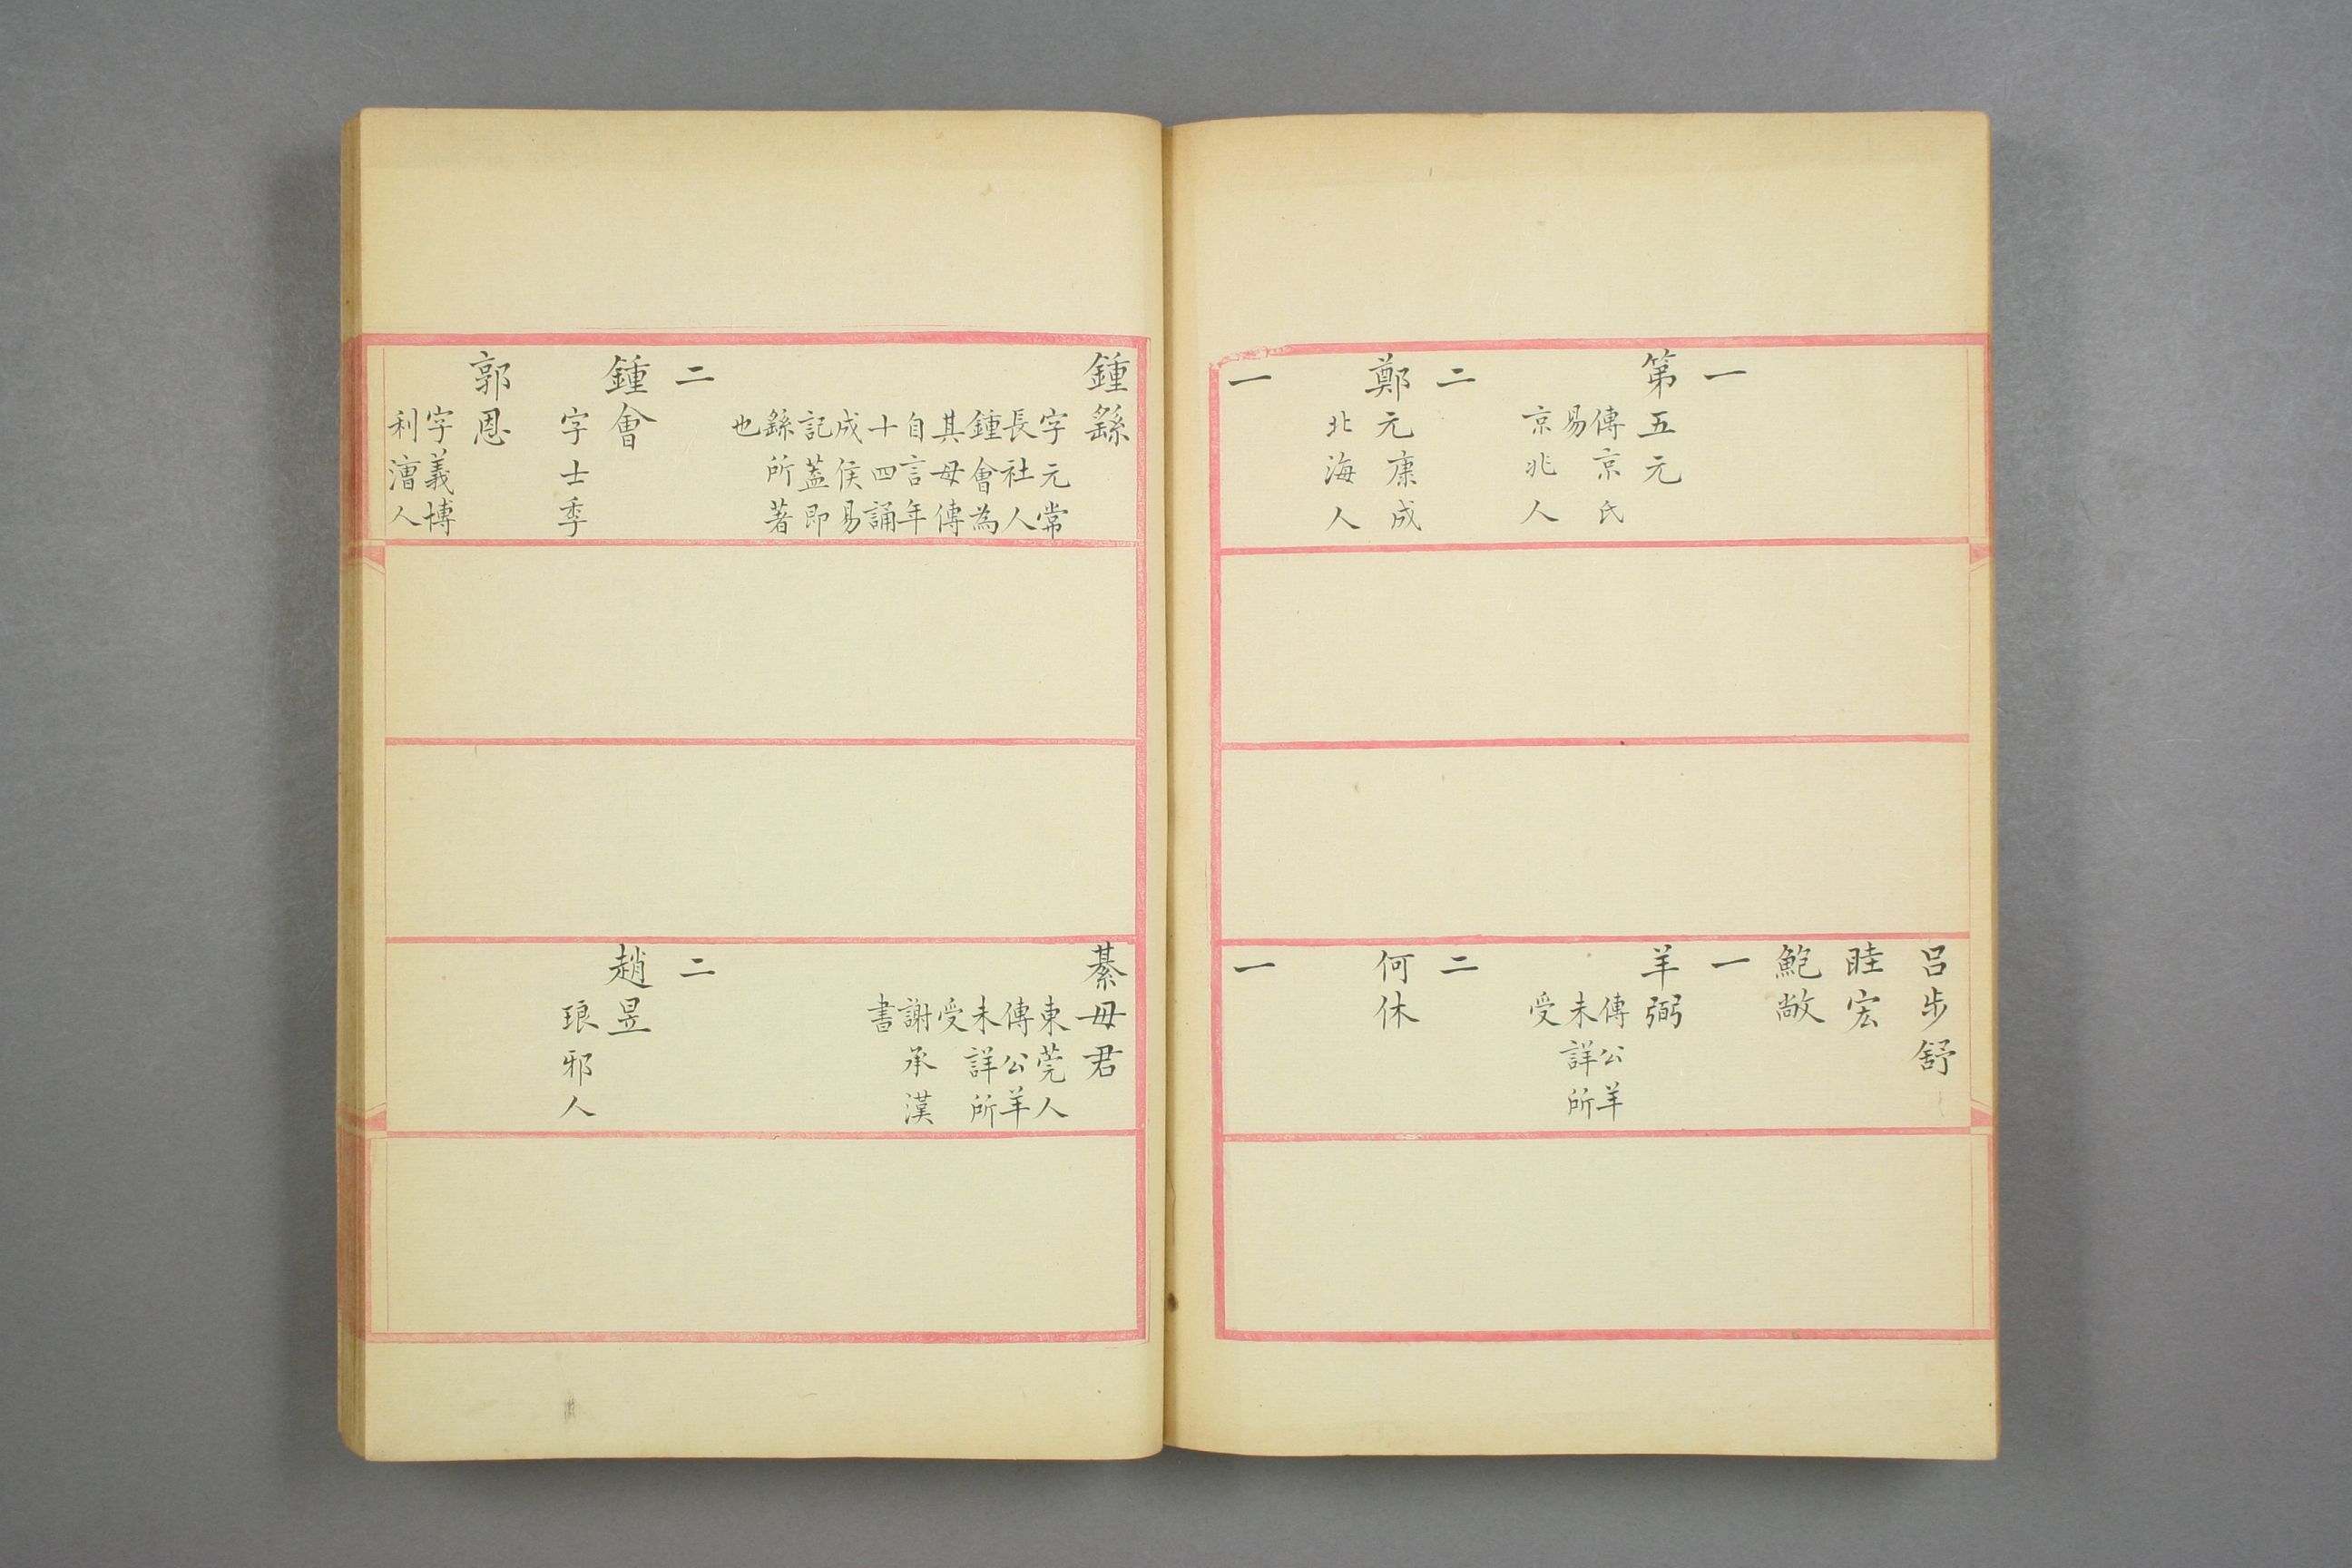 一
第五元
傳京氏
易
京兆人
二
鄭元康成
北海人
一
呂步舒
眭宏
鮑敞
一
羊弼
傳公羊
未詳所
受
二
何休
一
鍾繇
字元常
長社人
鍾會為
其母傳
自言年
十四誦
成侯易
記蓋即
繇所著
也
二
鍾會
字士季
郭恩
字義博
利漕人
綦毋君
東莞人
傳公羊
未詳所
受
謝承漢
書
二
趙昱
琅邪人